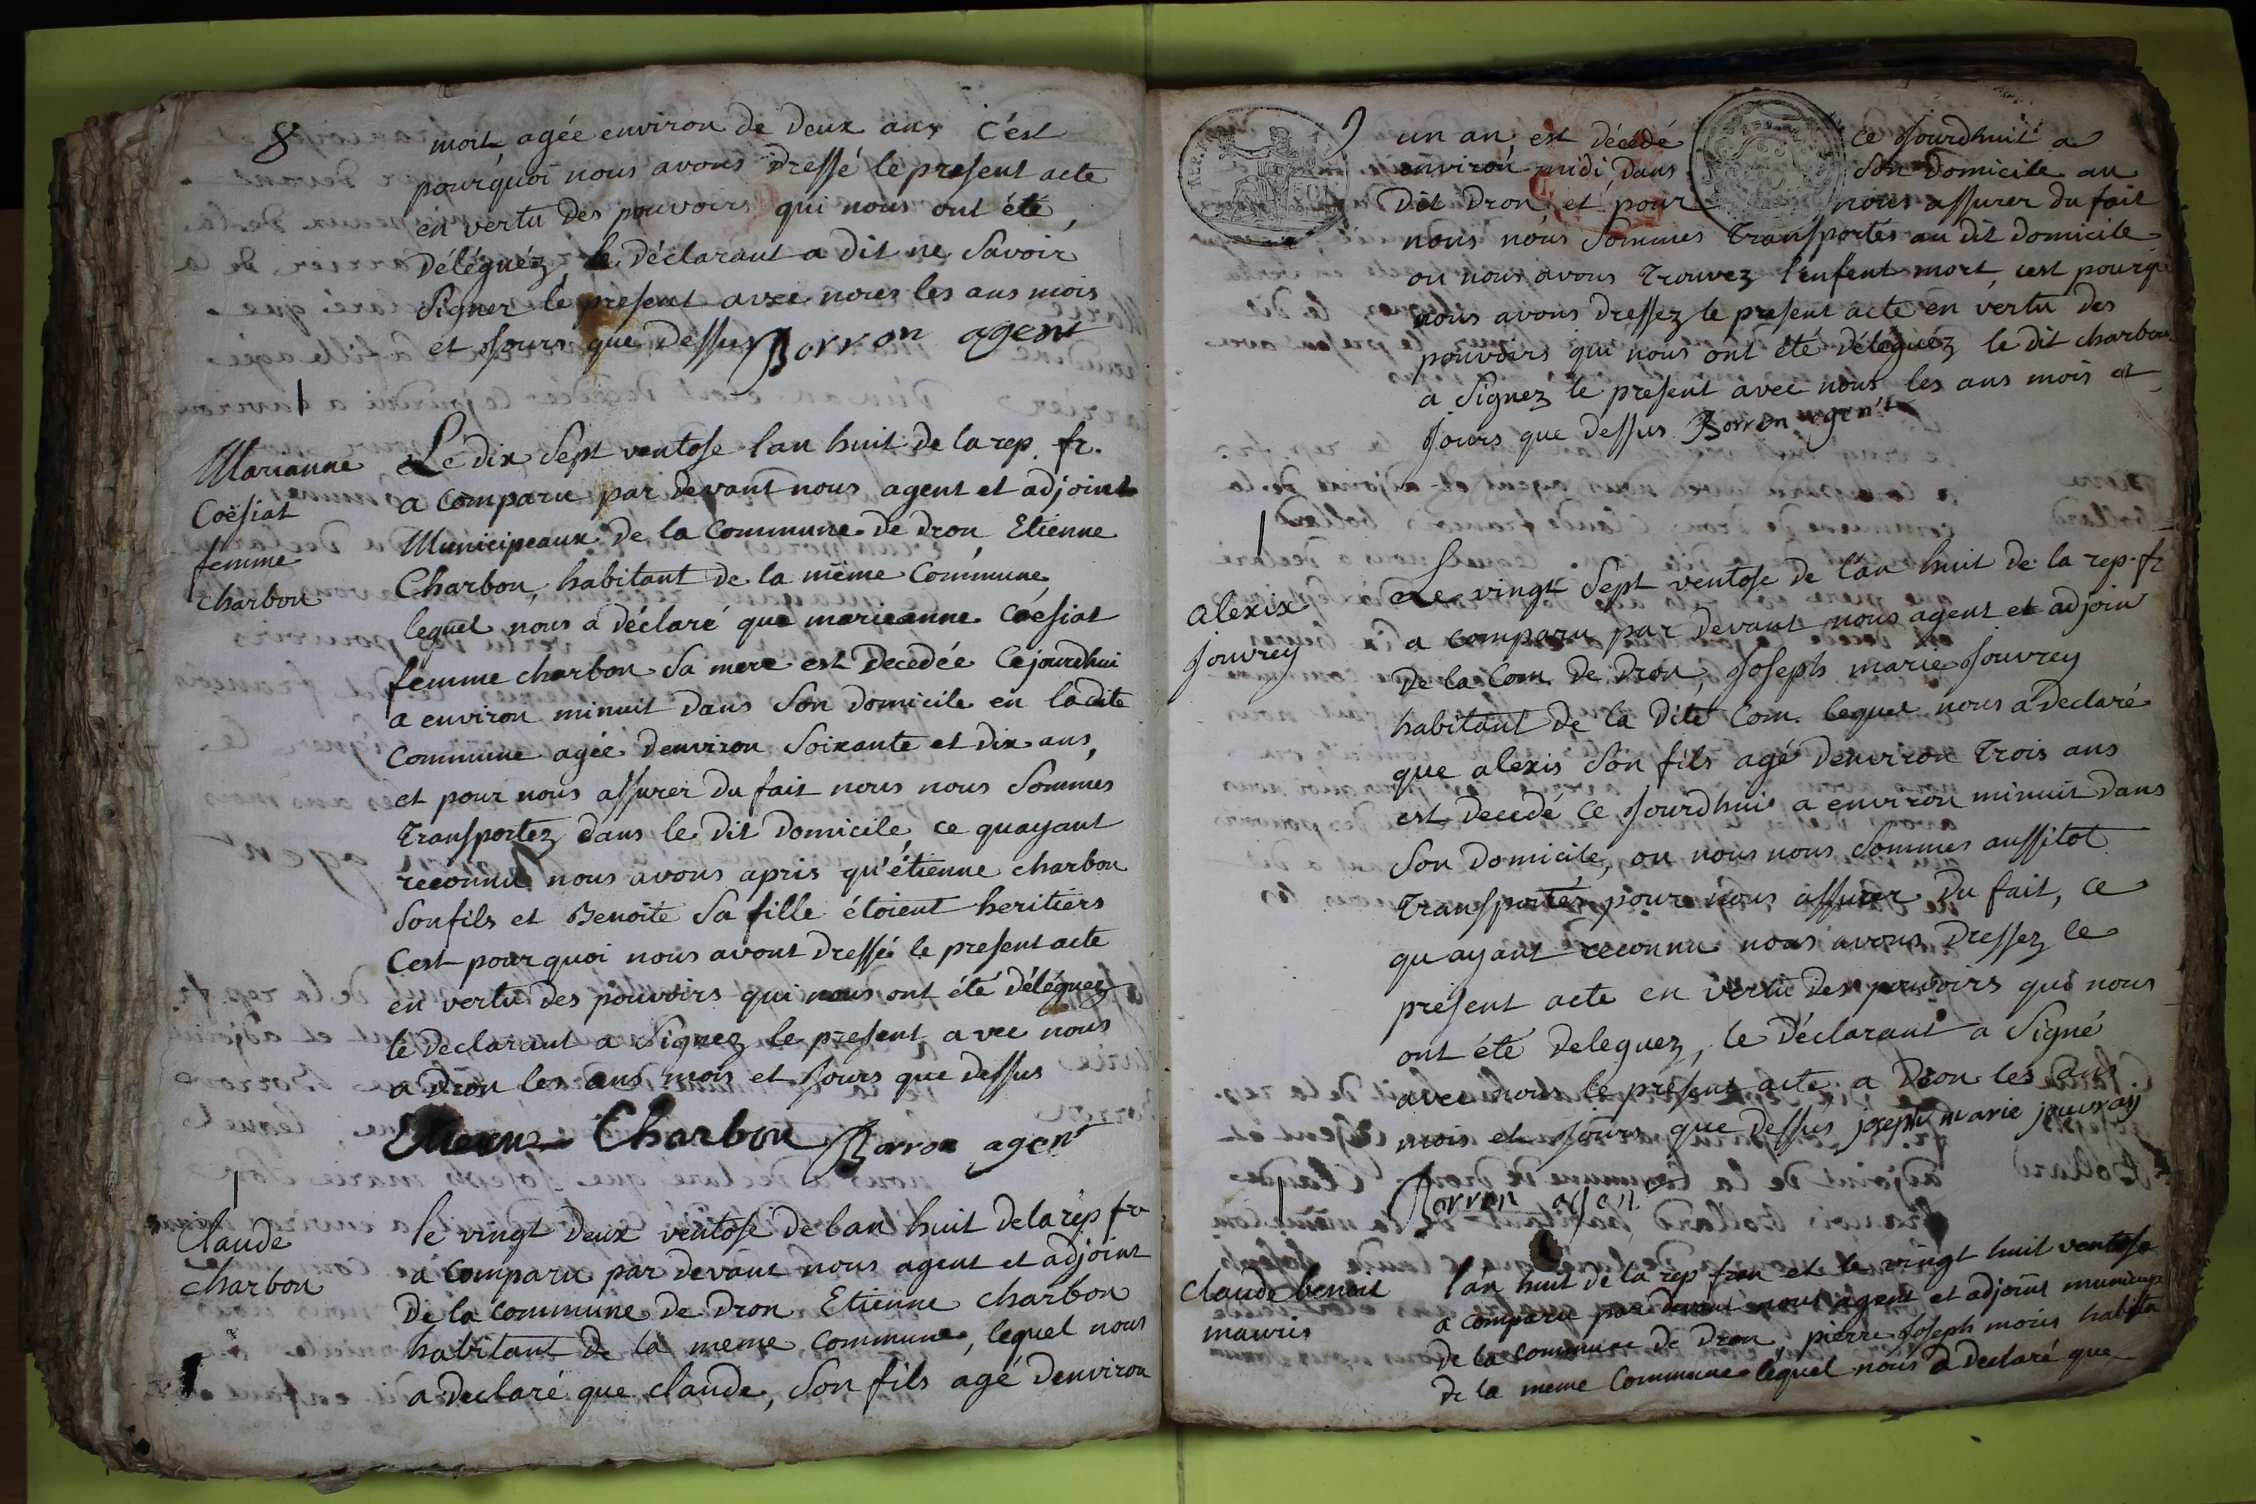 8
mort agée environ de deux ans c'est
pourquoi nous avons dressé le present acte
en vertu des pouvoirs qui nous ont été
déléguéz, le déclarant a dit ne savoir
signer le present avec nous les ans mois
et jours que dessus Borron agent
Marianne
Coësiat
femme
charbon
Le dix sept ventose lan huit de la rep. fr.
a comparu par devant nous agent et adjoint
Municipeaux de la Commune de dron, Etienne
Charbon, habitant de la même Commune
lequel nous a déclaré que marieanne Coësiat
femme charbon sa mere est decedée Cejourdhui
a environ minuit dans son domicile en la dite
Commune agée denviron soixante et dix ans,
et pour nous assurer du fait nous nous sommes
transportez dans le dit domicile, ce quayant
reconnu nous avons apris qu'étienne charbon
son fils et Benoite sa fille étoient heritiers
Cest pourquoi nous avont dressé le present acte
en vertu des pouvoirs qui nous ont été déléguez
le declarant a signez le present avec nous
a dron les ans mois et jours que dessus
Etienne Charbon Borron agent
Claude
charbon
le vingt deux ventose de lan huit de la rep fr
a comparu par devant nous agent et adjoint
de la commune de dron Etienne charbon
habitant de la meme commune, lequel nous
a declaré que claude, son fils agé denviron
9
un an, est décédé ce jourdhuit a
environ midi, dans son domicile au
dit dron, et pour nous assurer du fait
nous nous sommes transportés au dit domicile
ou nous avons trouvez l'enfent mort, cest pourqui
nous avons dressez le present acte en vertu des
pouvoirs qui nous ont été déléguéz le dit charbon
a signez le present avec nous les ans mois et
jours que dessus Borron agent
alexix
jouvrey
Le vingt sept ventose de l'an huit de la rep. fr
a comparu par devant nous agent et adjoin
de la Com. de dron, joseph marie jouvrey
habitant de la dite Com. lequel nous a declaré
que alexis son fils agé denviron trois ans
est decedé ce jourdhui a environ minuit dans
son domicile, ou nous nous sommes aussitot
transportés, pour nous assurer du fait, ce
qu ayant reconnu nous avons dressez le
présent acte en vertu des pouvoirs qui nous
ont été deleguez, le déclarant a signé
avec nous le présent acte a dron les ans
mois et jours que dessus joseph marie jouvray
Borron agent
claude benoit
mauris
lan huit de la rep fran et le vingt huit ventose
a comparu par devant nous agent et adjoint municip
de la commune de dron, pierre joseph moris habita
de la meme Commune lequel nous a declaré que